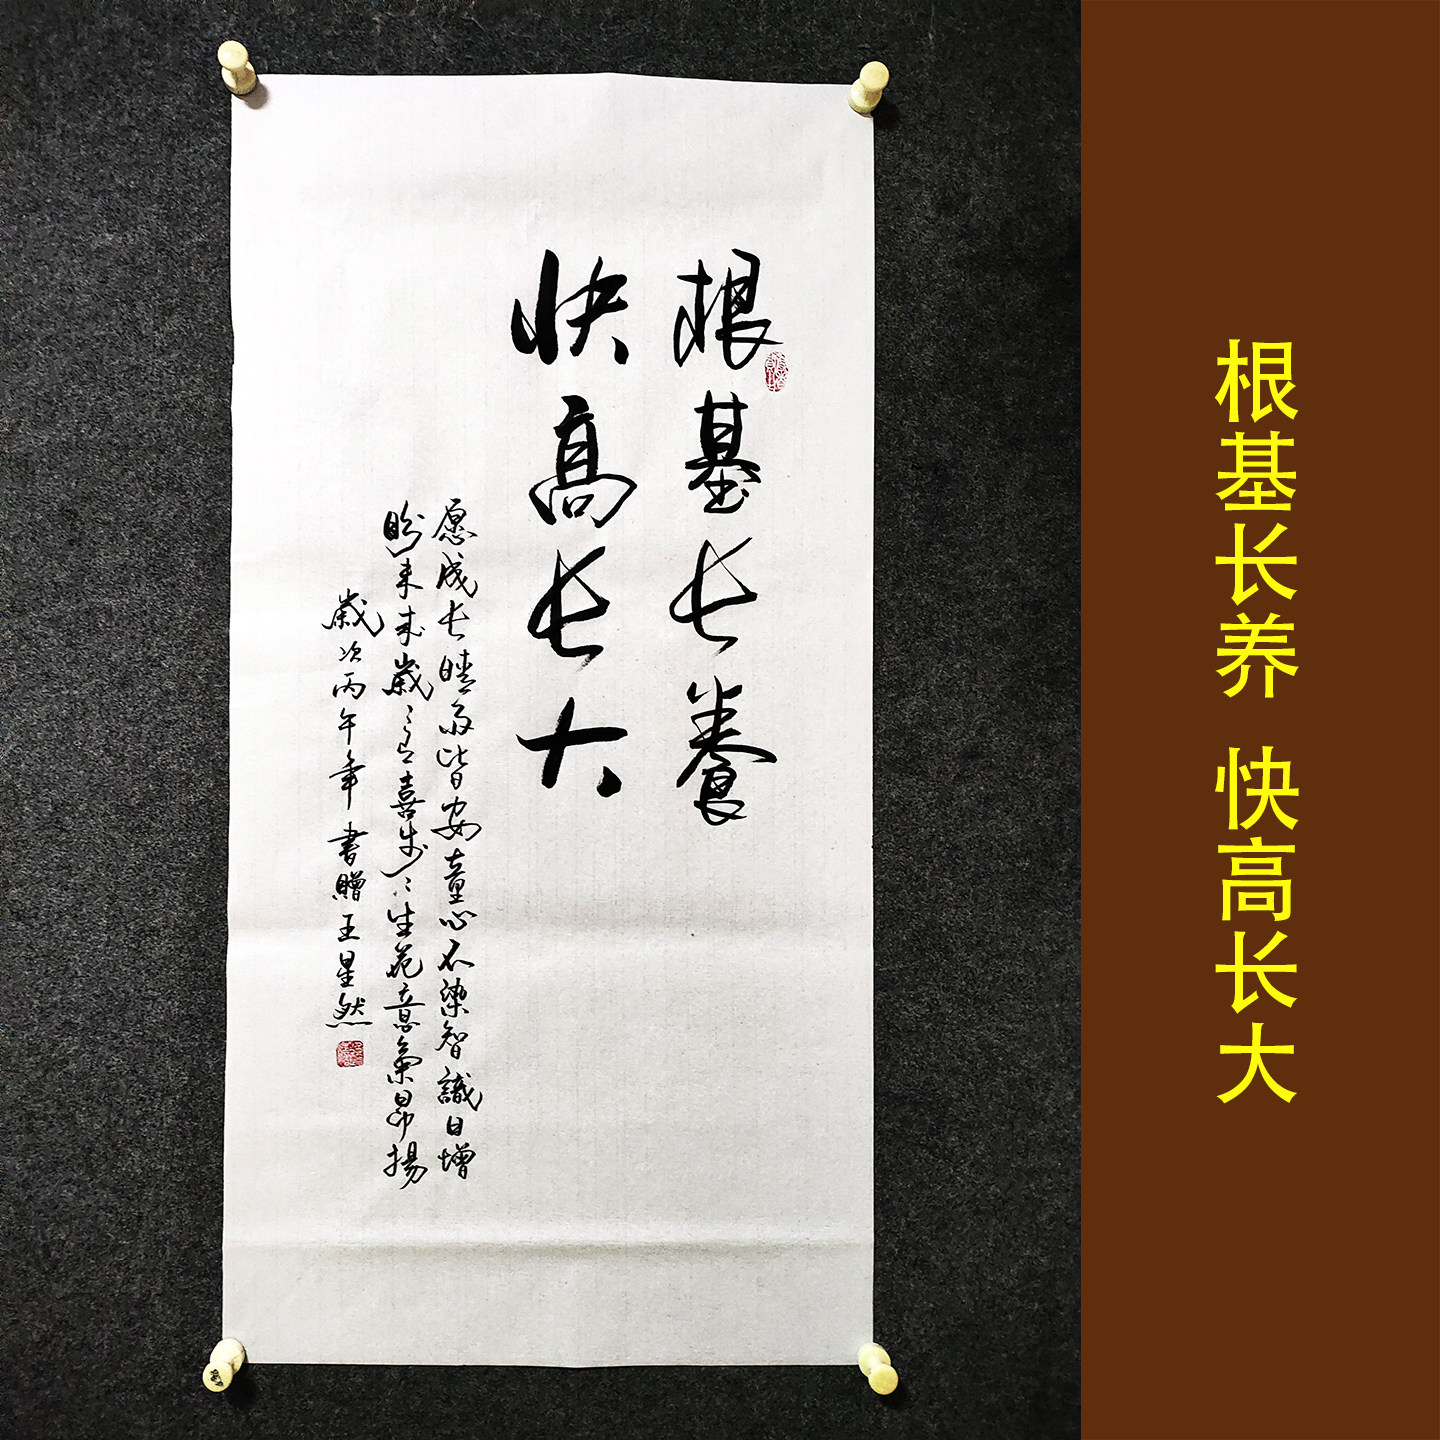 根基长養
快高长大
愿成长晴雨皆安童心不染智識日增
盼未来歲〻喜步〻生花意氣昂揚
歲次丙午年 書贈王星然
根基长养 快高长大